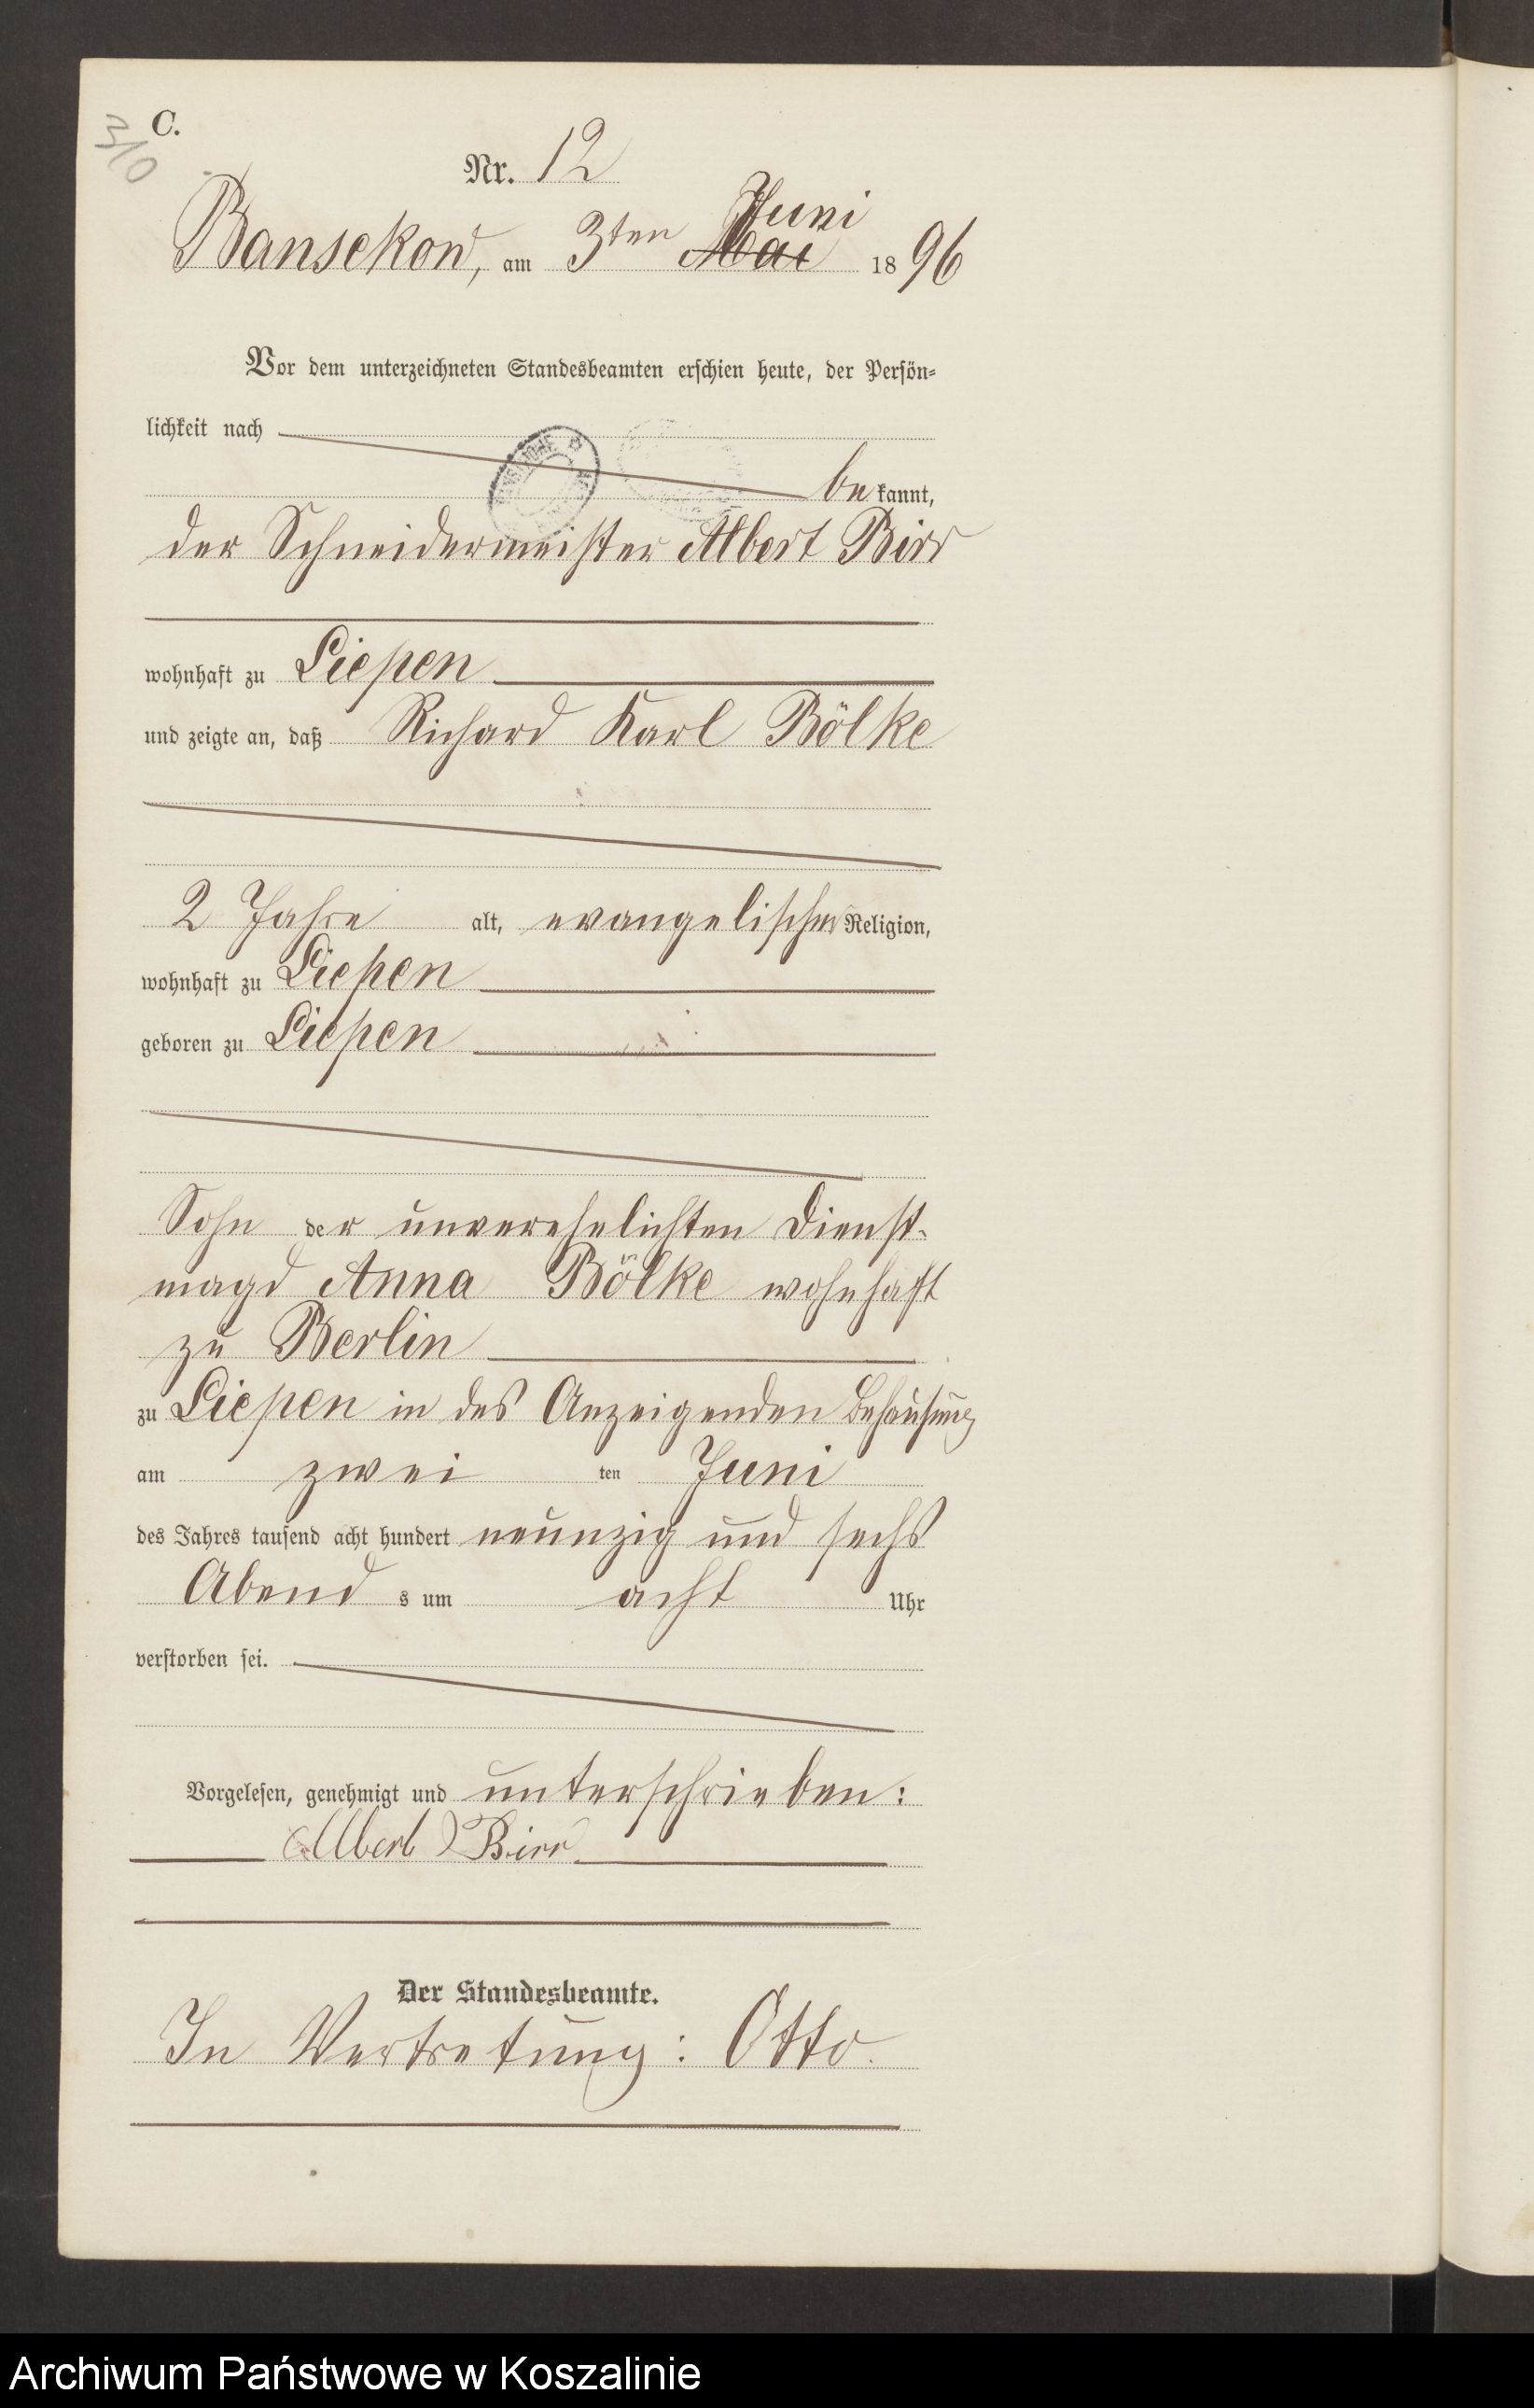 C.
310
Nr. 12
Juni
Bansekow, am 3ten Mai 1896
Vor dem unterzeichneten Standesbeamten erschien heute, der Persön-
lichkeit nach
bekannt,
der Schneidermeister Albert Birr
wohnhaft zu Liepen
und zeigte an, daß Richard Karl Bölke
2 Jahre alt, evangelischer Religion,
wohnhaft zu Liepen
geboren zu Liepen
Sohn der unverehelichten Dienst-
magd Anna Bölke wohnhaft
zu Berlin
zu Liepen in des Anzeigenden Behausung
am zwei ten Juni
des Jahres tausend acht hundert neunzig und sechs
Abends um acht Uhr
verstorben sei.
Vorgelesen, genehmigt und unterschrieben:
Albert Birr
Der Standesbeamte.
In Vertretung: Otto.
Archiwum Państwowe w Koszalinie